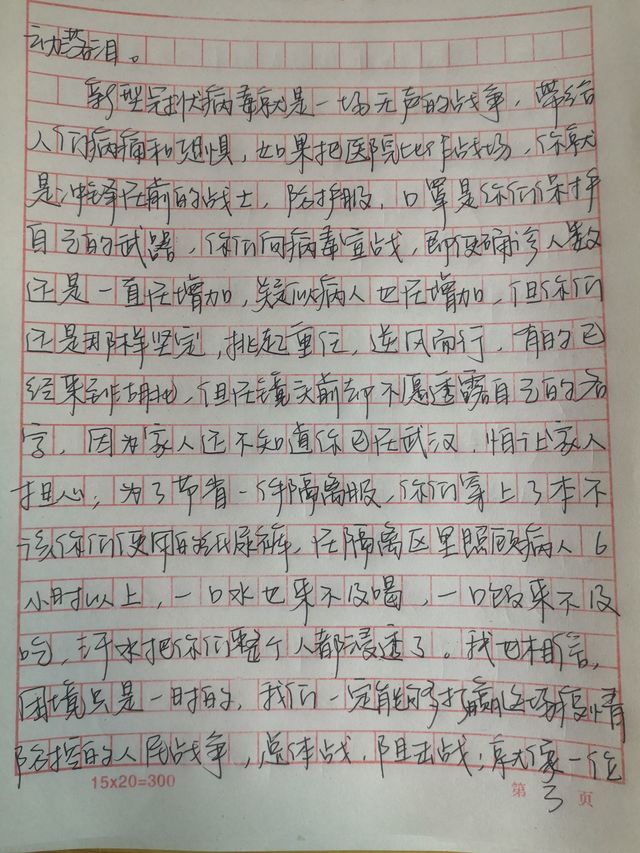 动落泪。
新型冠状病毒就是一场无声的战争，带给
人们病痛和恐惧，如果把医院比作战场，你就
是冲锋在前的战士，防护服，口罩是你们保护
自己的武器，你们向病毒宣战，即使确诊人数
还是一直在增加，疑似病人也在增加，但你们
还是那样坚定，挑起重任，逆风而行，有的已
经来到湖北，但在镜头前却不愿透露自己的名
字，因为家人还不知道你已在武汉，怕让家人
担心；为了节省一件隔离服，你们穿上了本不
该你们使用的纸尿裤，在隔离区里照顾病人6
小时以上，一口水也来不及喝，一口饭来不及
吃，汗水把你们整个人都浸透了。我也相信，
困境只是一时的，我们一定能够打赢这场疫情
防控的人民战争，总体战，阻击战；就像一位
15×20=300
第3页